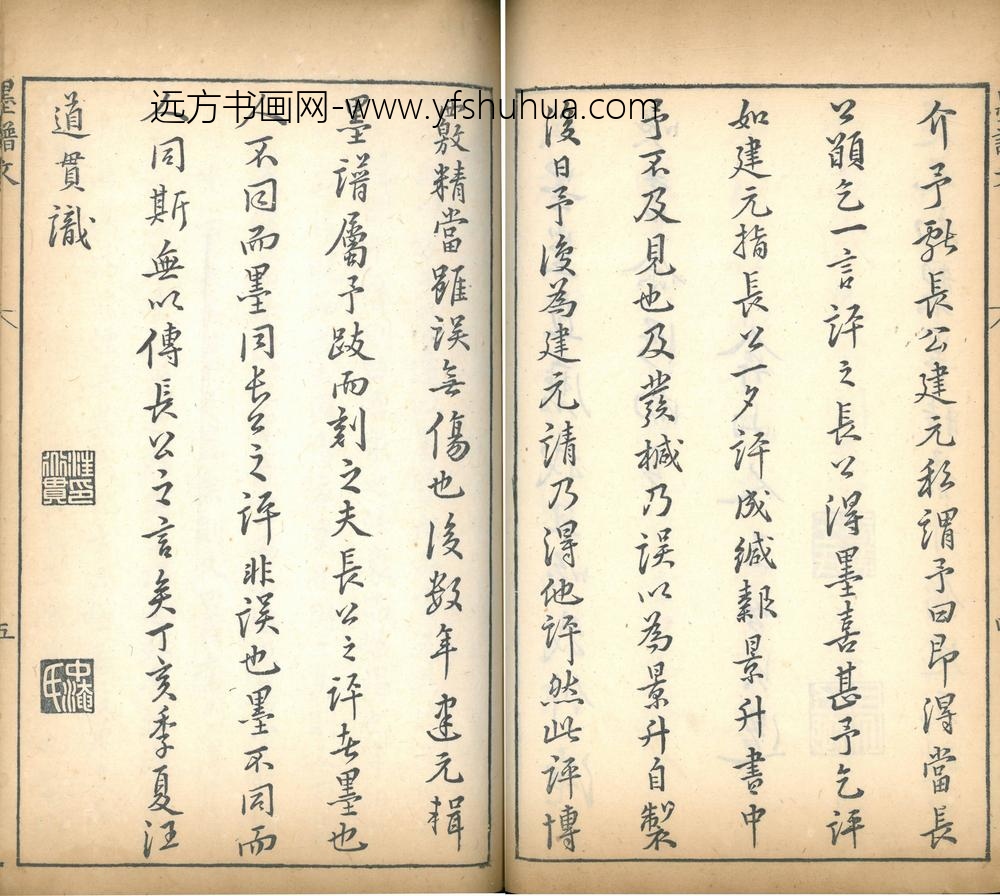 远方书画网-www.yfshuhua.com
介予献長公建元私謂予曰即得當長
公顧乞一言評之長公得墨喜甚予乞評
如建元指長公一夕評成緘報景升書中
予不及見也及發椷乃誤以為景升自製
後日予復為建元請乃得他評然此評博
敷精當雖误無傷也後数年建元輯
墨譜屬予跋而刻之夫長公之評在墨也
不同而墨同長公之評非误也墨不同而
同斯無以傳長公之言矣丁亥季夏汪
道貫識
汪印道貫
中淹氏
墨譜文
五